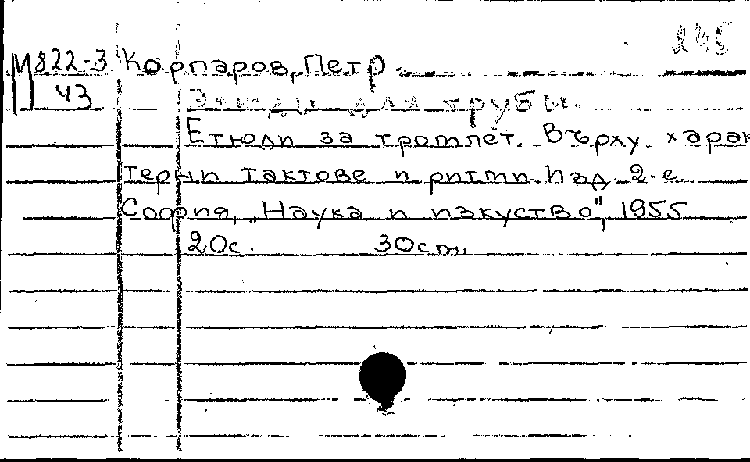 245
М822-3 Карпаров, Петр.
43 Этюды для трубы.
Етюди за тромпет. Върху харак
терни тактове и ритми. Изд. 2-е
София, „Наука и изкуство", 1955
20с. 30см.